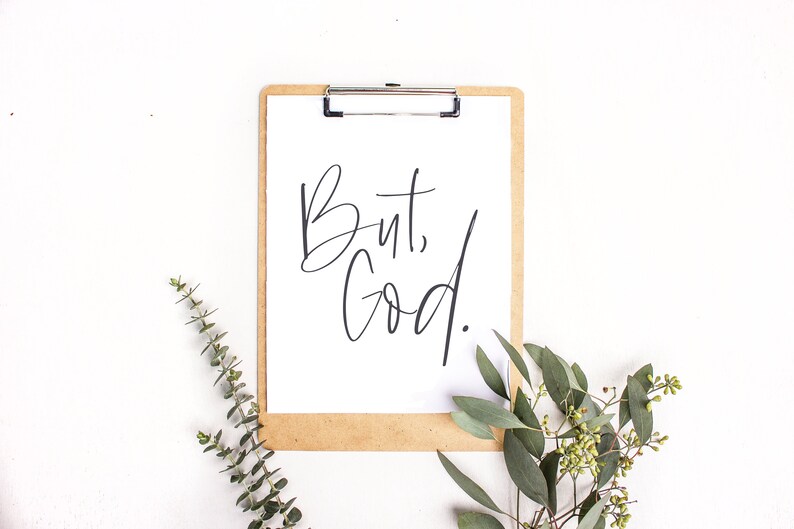 But,
God.